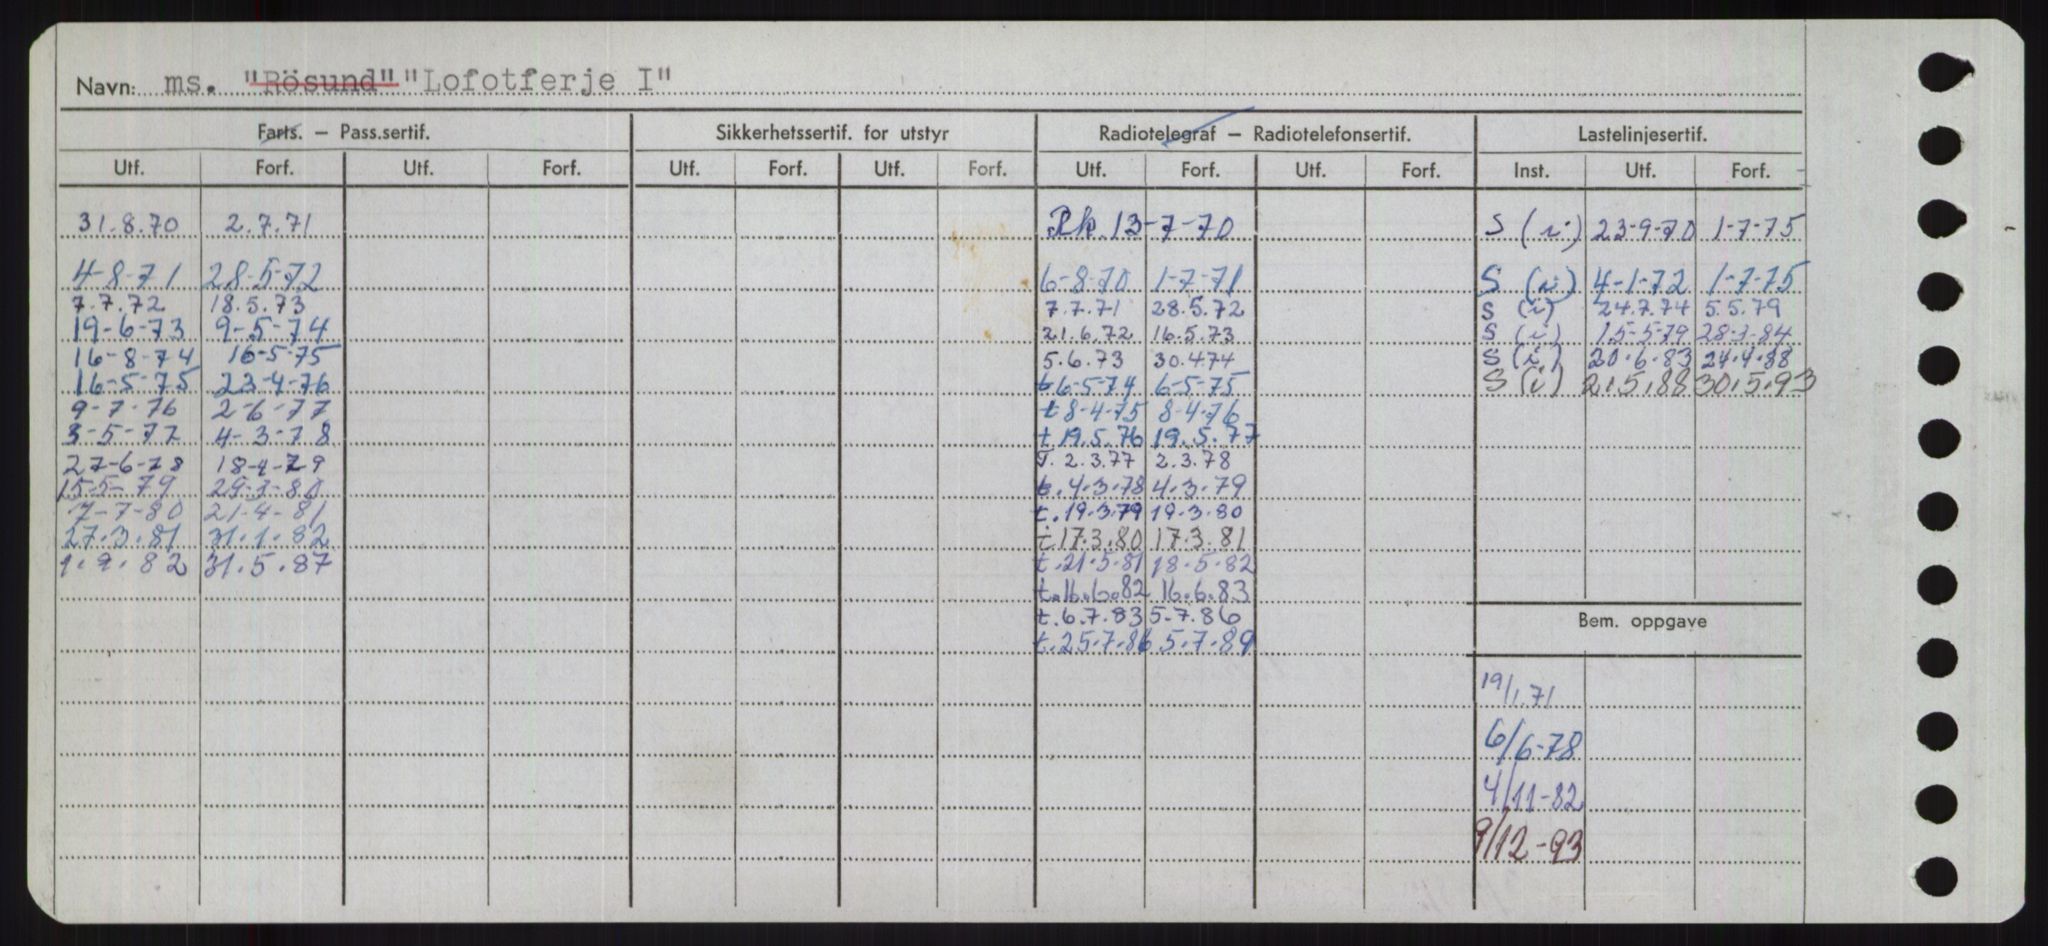 Navn: ms. "Rösund" "Lofotferje I"
Farts. — Pass.sertif. Sikkerhetssertif. for utstyr Radiotelegraf — Radiotelefonsertif. Lastelinjesertif.
Utf. Forf. Utf. Forf. Utf. Forf. Utf. Forf. Utf. Forf. Utf. Forf. Inst. Utf. Forf.
31.8.70 2.7.71 Rk. 13-7-70 S (i) 23-9-70 1-7-75
4-8-71 28-5-72 6-8-70 1-7-71 S (i) 4-1-72 1-7-75
7.7.72 18.5.73 7.7.71 28.5.72 S (i) 24.7.74 5.5.79
19-6-73 9-5-74 21.6.72 16.5.73 S (i) 15-5-79 28-3-84
16-8-74 16-5-75 5.6.73 30.4.74 S (i) 20.6.83 24.4.88
16-5-75 23-4-76 t 6-5-74 6-5-75 S (i) 21.5.88 30.5.93
9-7-76 2-6-77 t 8-4-75 8-4-76
3-5-77 4-3-78 t 19.5.76 19.5.77
27-6-78 18-4-79 T. 2.3.77 2.3.78
15-5-79 29-3-80 t. 4.3.78 4.3.79
7-7-80 21-4-81 t. 19.3.79 19.3.80
27.3.81 31.1.82 t 17.3.80 17.3.81
1.9.82 31.5.87 t. 21.5.81 18.5.82
t. 16.6.82 16.6.83
t. 6.7.83 5.7.86
t. 25.7.86 5.7.89
Bem. oppgave
19/1.71
6/6-78
4/11-82
9/12-93